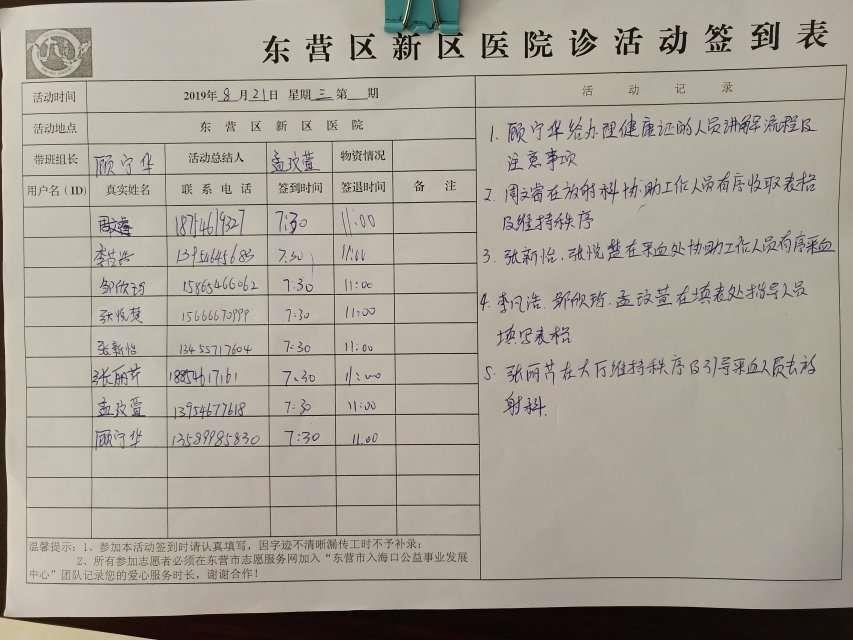 东营区新区医院诊活动签到表
活动时间 2019年8月21日 星期三 第 期
活动地点 东营区新区医院
带班组长 顾宁华 活动总结人 孟玟萱 物资情况
用户名(ID) 真实姓名 联系电话 签到时间 签退时间 备注
周文睿 7:30 11:00
7:30 11:00
邹欣玲 15865466062 7:30 11:00
张悦楚 15666670999 7:30 11:00
张新怡 13455717604 7:30 11:00
张丽芹 18854617161 7:30 11:00
孟玟萱 13954677618 7:30 11:00
顾宁华 13589985830 7:30 11.00
温馨提示：1、参加本活动签到时请认真填写，因字迹不清晰漏传工时不予补录；
2、所有参加志愿者必须在东营市志愿服务网加入“东营市入海口公益事业发展
中心”团队记录您的爱心服务时长，谢谢合作！
活动记录
1. 顾宁华给办理健康证的人员讲解流程及
注意事项
2. 周文睿在放射科协助工作人员有序收取表格
及维持秩序
3. 张新怡、张悦楚在采血处协助工作人员有序采血
4. 李凡浩、邹欣玲、孟玟萱在填表处指导人员
填写表格
5. 张丽芹在大厅维持秩序及引导采血人员去放
射科.